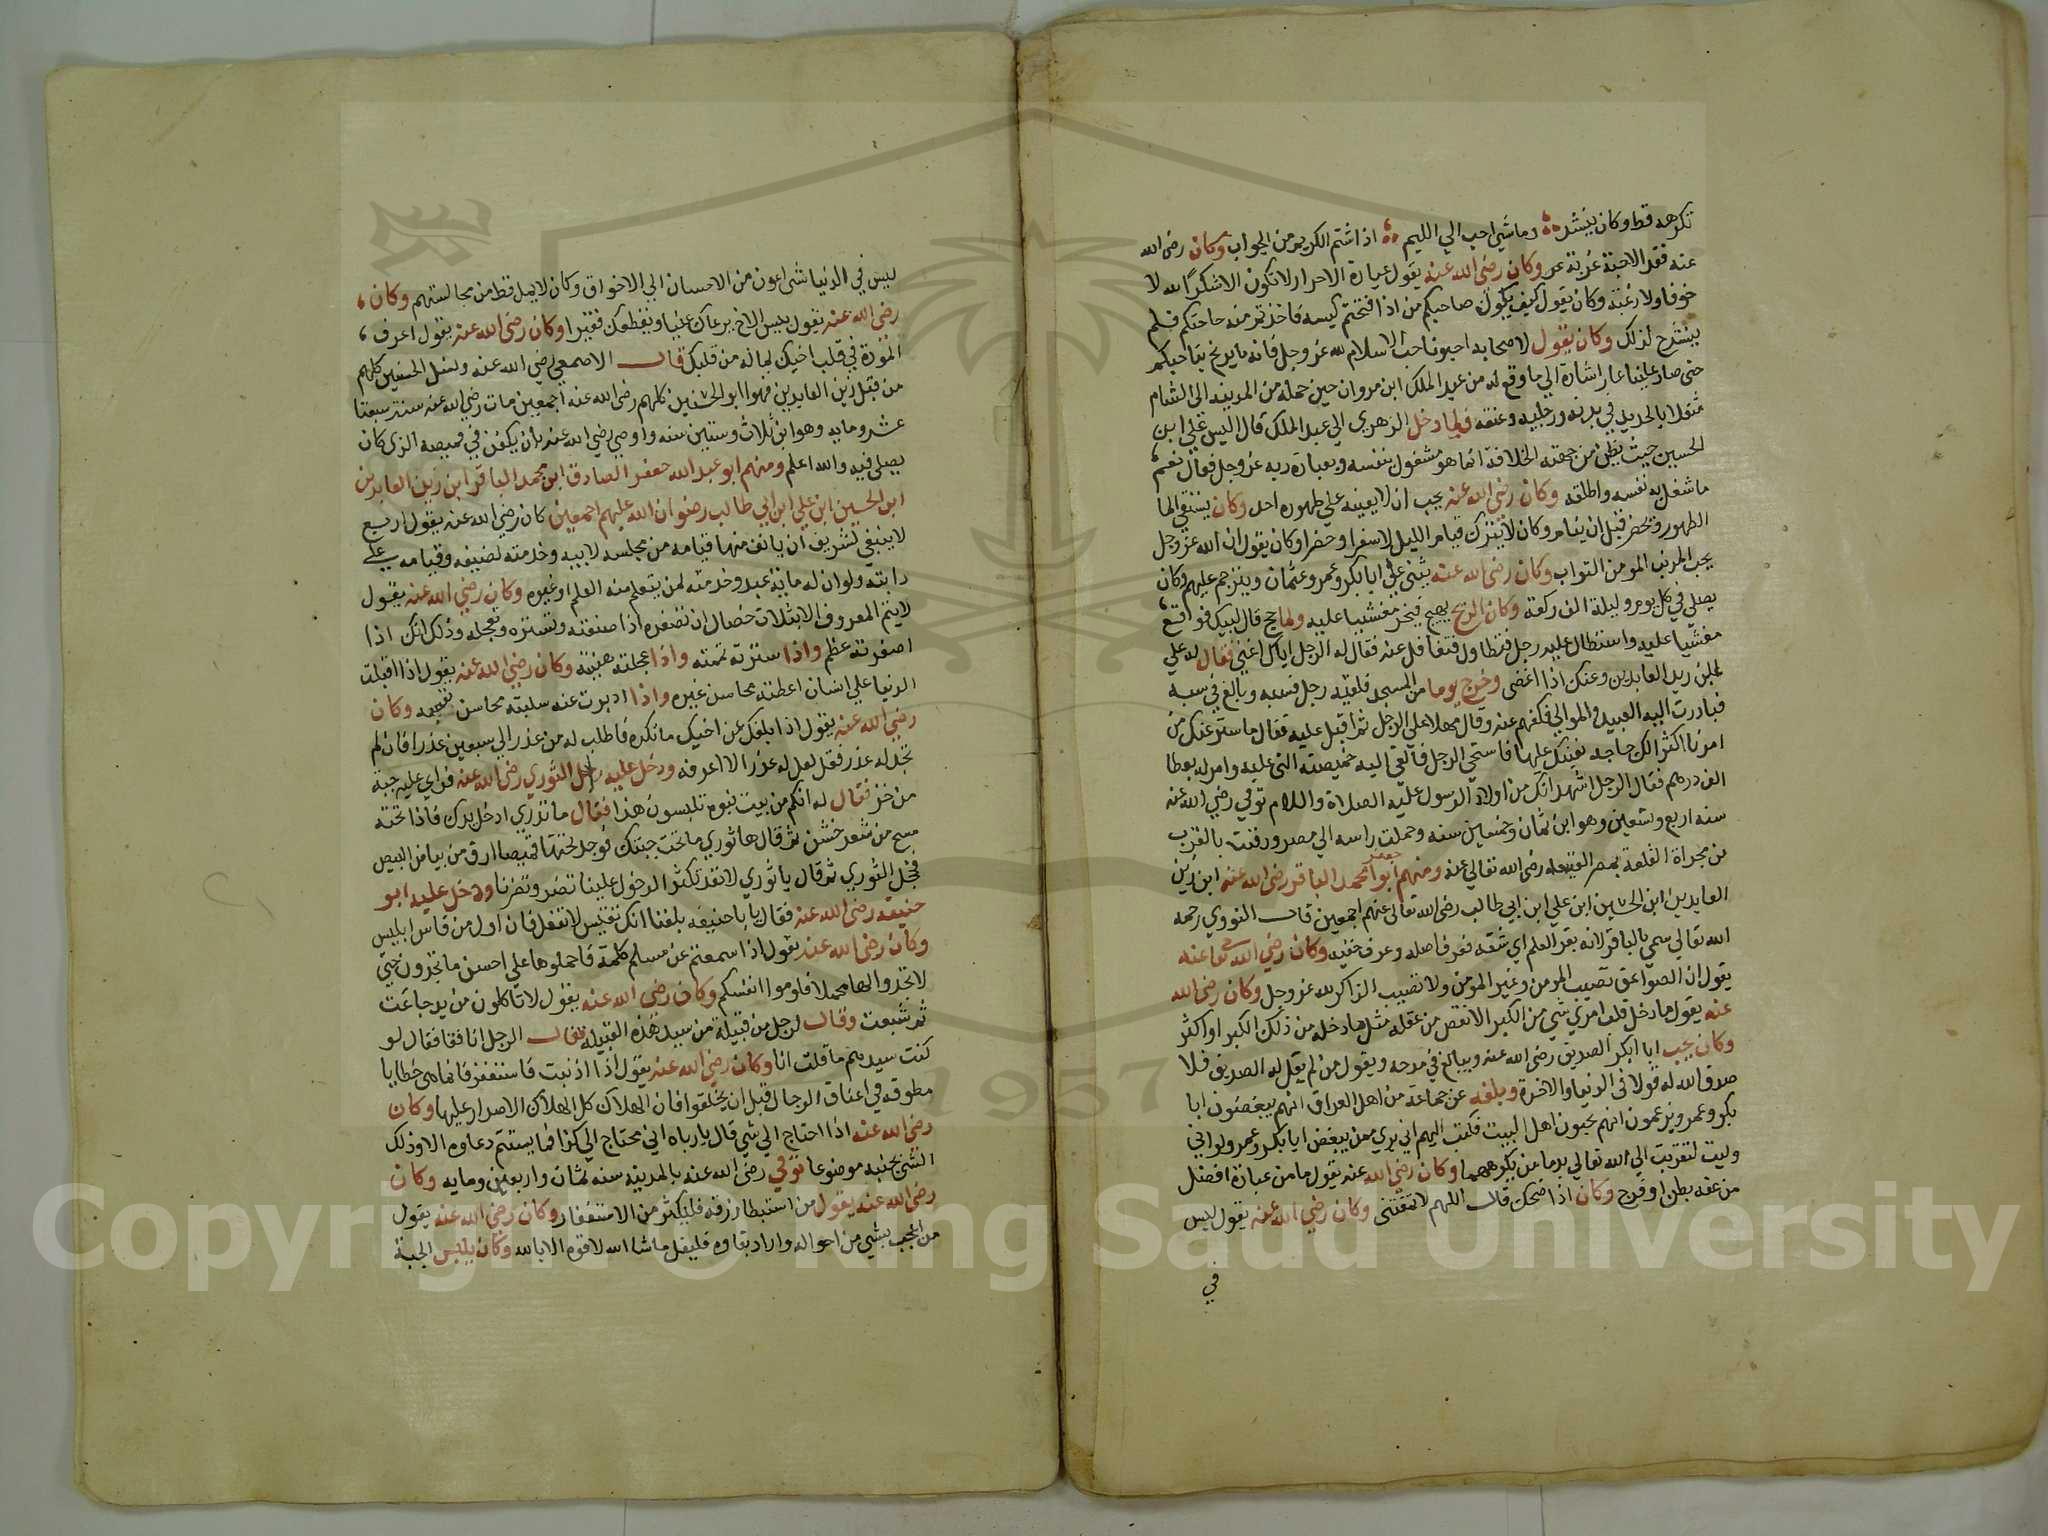 تكرهه قط وكان ينشد وما شي احب الي اللئيم اذا شتم الكريم من الجواب وكان رضي الله
عنه فقد الاحبة غربة وكان رضي الله عنه يقول عبادة الاحرار لا تكون الا شكرا لله لا
خوفا ولا رغبة وكان يقول كيف يكون صاحبكم من اذا فتحتم كيسه فاخذتم منه حاجتكم فلم
ينشرح لذلك وكان يقول لاصحابه احبونا حب الاسلام لله عز وجل فانه ما برح بنا حبكم
حتى صار علينا عار اشارة الي ما وقع له من عبد الملك ابن مروان حين حمله من المدينه الي الشام
مثقلا بالحديد في يديه ورجليه وعنقه فلما دخل الزهري الي عبد الملك قال ليس علي ابن
الحسين حيث يظن من جهته الخلافة انما هو مشغول بنفسه وبعبادة ربه عز وجل فقال نعم
ما شغل به نفسه واطلقه وكان رضي الله عنه يحب ان لا يعينه علي طهوره احد وكان يستقي الما
لطهوره ويحضره قبل ان ينام وكان لا يترك قيام الليل لا سفرا وحضرا وكان يقول ان الله عز وجل
يحب المذنب المومن التواب وكان رضي الله عنه يثني علي ابا بكر وعمر وعثمان ويترحم عليهم وكان
يصلي في كل يوم وليلة الف ركعة وكان الريح يهيج فيخر مغشيا عليه ولما حج قال لبيك فوقع
مغشيا عليه واستطال عليه رجل فتطاول فتغافل عنه فقال له الرجل اياك اعني فقال له علي
زين العابدين وعنك اذا اغضي وخرج يوما من المسجد فلقيه رجل فسبه وبالغ في سبه
فبادرت اليه العبيد والموالي فكفهم عنه وقال مهلا علي الرجل ثم اقبل عليه فقال ما ستر عنك من
امرنا اكثر الك حاجه نعينك عليها فاستحي الرجل فالقي اليه خميصته التي عليه وامر له بعطا
الف درهم فقال الرجل اشهد انك من اولاد الرسول عليه الصلاة والسلام توفي رضي الله عنه
سنه اربع وتسعين وهو ابن ثمان وخمسين سنه وحملت راسه الي مصر ودفنت بالقرب
من مجراة القلعة بمصر العتيقه رضي الله تعالي عنه ومنهم ابو جعفر محمد الباقر رضي الله عنه ابن زين
العابدين ابن الحسين ابن علي ابن ابي طالب رضي الله تعالي عنهم اجمعين قال النووي رحمه
الله تعالي سمي بالباقر لانه بقر العلم اي شقه فعرف اصله وعرف خفيه وكان رضي الله تعا عنه
يقول ان الصواعق تصيب المومن وغير المومن ولا تصيب الذاكر لله عز وجل وكان رضي الله
عنه يقول ما دخل قلب امرئ شي من الكبر الا نقص من عقله مثل ما دخله من ذلك الكبر او اكثر
وكان يحب ابا بكر الصديق رضي الله عنه ويبالغ في مدحه ويقول من لم يقل له الصديق فلا
صدق الله له قولا في الدنيا والاخرة وبلغه عن جماعة من اهل العراق انهم يبغضون ابا
بكر وعمر ويزعمون انهم يحبون اهل البيت فكتب اليهم اني بري ممن يبغض ابا بكر وعمر ولو اني
وليت لتقربت الي الله تعالي بدما من يكرههما وكان رضي الله عنه يقول ما من عبادة افضل
من عفة بطن او فرج وكان اذا ضحك قال اللهم لا تمقتني وكان رضي الله عنه يقول ليس
في
ليس في الدنيا شي اعون من الاحسان الي الاخوان وكان لا يمل قط من مجالستهم وكان
رضي الله عنه يقول بيس الاخ يرعاك غنيا ويقطعك فقيرا وكان رضي الله عنه يقول اعرف
المودة في قلب اخيك بما له من قلبك قال الاصمعي رضي الله عنه ونسل الحسين كلهم
من قبل زين العابدين فهو ابو الحسنين كلهم رضي الله عنه اجمعين مات رضي الله عنه سنة سبعة
عشر ومايه وهو ابن ثلاث وستين سنه واوصي رضي الله عنه بان يكفن في قميصه الذي كان
يصلي فيه والله اعلم ومنهم ابو عبد الله جعفر الصادق ابن محمد الباقر ابن زين العابدين
ابن الحسين ابن علي ابن ابي طالب رضوان الله عليهم اجمعين كان رضي الله عنه يقول اربع
لا ينبغي لشريف ان يانف منها قيامه من مجلسه لابيه وخدمته لضيفه وقيامه علي
دابته ولو ان له ماية عبد وخدمته لمن يتعلم منه العلم او غيره وكان رضي الله عنه يقول
لا يتم المعروف الا بثلاث خصال ان تصغره اذا صنعته وتستره وتعجله وذلك انك اذا
اصغرته عظم واذا سترته تممته واذا عجلته هنيته وكان رضي الله عنه يقول اذا اقبلت
الدنيا علي انسان اعطته محاسن غيره واذا ادبرت عنه سلبته محاسن نفسه وكان
رضي الله عنه يقول اذا بلغك عن اخيك ما تكره فاطلب له من عذر الي سبعين عذرا فان لم
تجد له عذر فقل لعل له عذرا لا اعرفه ودخل عليه رجل الثوري رضي الله عنه فراي عليه جبة
من خز فقال له انكم من بيت نبوه تلبسون هذا فقال ما تدري ادخل يدك فاذا تحته
مسح من شعر خشن ثم قال ها ثوري ما تحت جبتك فوجد تحتها قميصا ارق من بياض البيض
فخجل الثوري ثم قال يا ثوري لا تعد تكثر الدخول علينا تضر وتضرنا ودخل عليه ابو
حنيفه رضي الله عنه فقال يا ابا حنيفه بلغنا انك تقيس لا تفعل فان اول من قاس ابليس
وكان رضي الله عنه يقول اذا سمعتم عن مسلم كلمة فاحملوها علي احسن ما تجدون حتي
لا تجدوا لها محملا فلوموا انفسكم وكان رضي الله عنه يقول لا تاكلون من يد جاعت
ثم شبعت وقال لرجل من قبيلة من سيد هذه القبيله فقال الرجل انا فقال لو
كنت سيدهم ما قلت انا وكان رضي الله عنه يقول اذا اذنبت فاستغفر فانما هي خطايا
مطوقه في اعناق الرجال قبل ان يخلقوا فان الهلاك كل الهلاك الاصرار عليها وكان
رضي الله عنه اذا احتاج الي شي قال يا رباه اني محتاج الي كذا فما يستتم دعاوه الا وذلك
الشي بجنبه موضوعا توفي رضي الله عنه بالمدينه سنه ثمان واربعين ومايه وكان
رضي الله عنه يقول من استبطا رزقه فليكثر من الاستغفار وكان رضي الله عنه يقول
من اعجب بشي من احواله واراد بقاوه فليقل ما شا الله لا قوه الا بالله وكان يلبس الجبة
1957
Copyright © King Saud University